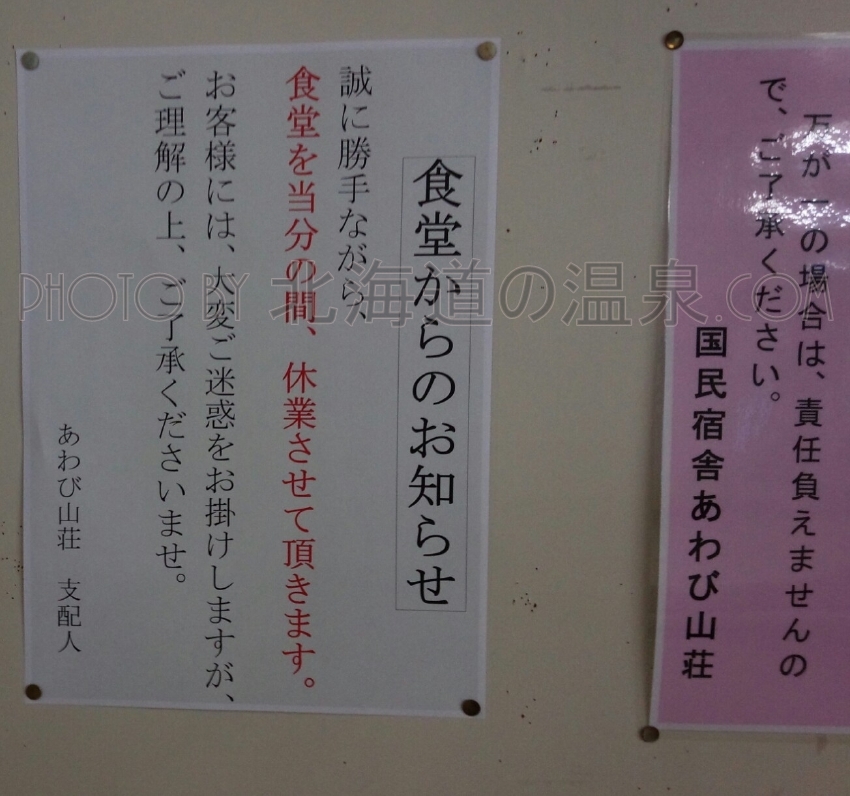 食堂からのお知らせ
誠に勝手ながら、
食堂を当分の間、休業させて頂きます。
お客様には、大変ご迷惑をお掛けしますが、
ご理解の上、ご了承くださいませ。
あわび山荘 支配人
万が一の場合は、責任負えませんの
で、ご了承ください。
国民宿舎あわび山荘
PHOTO BY 北海道の温泉.COM